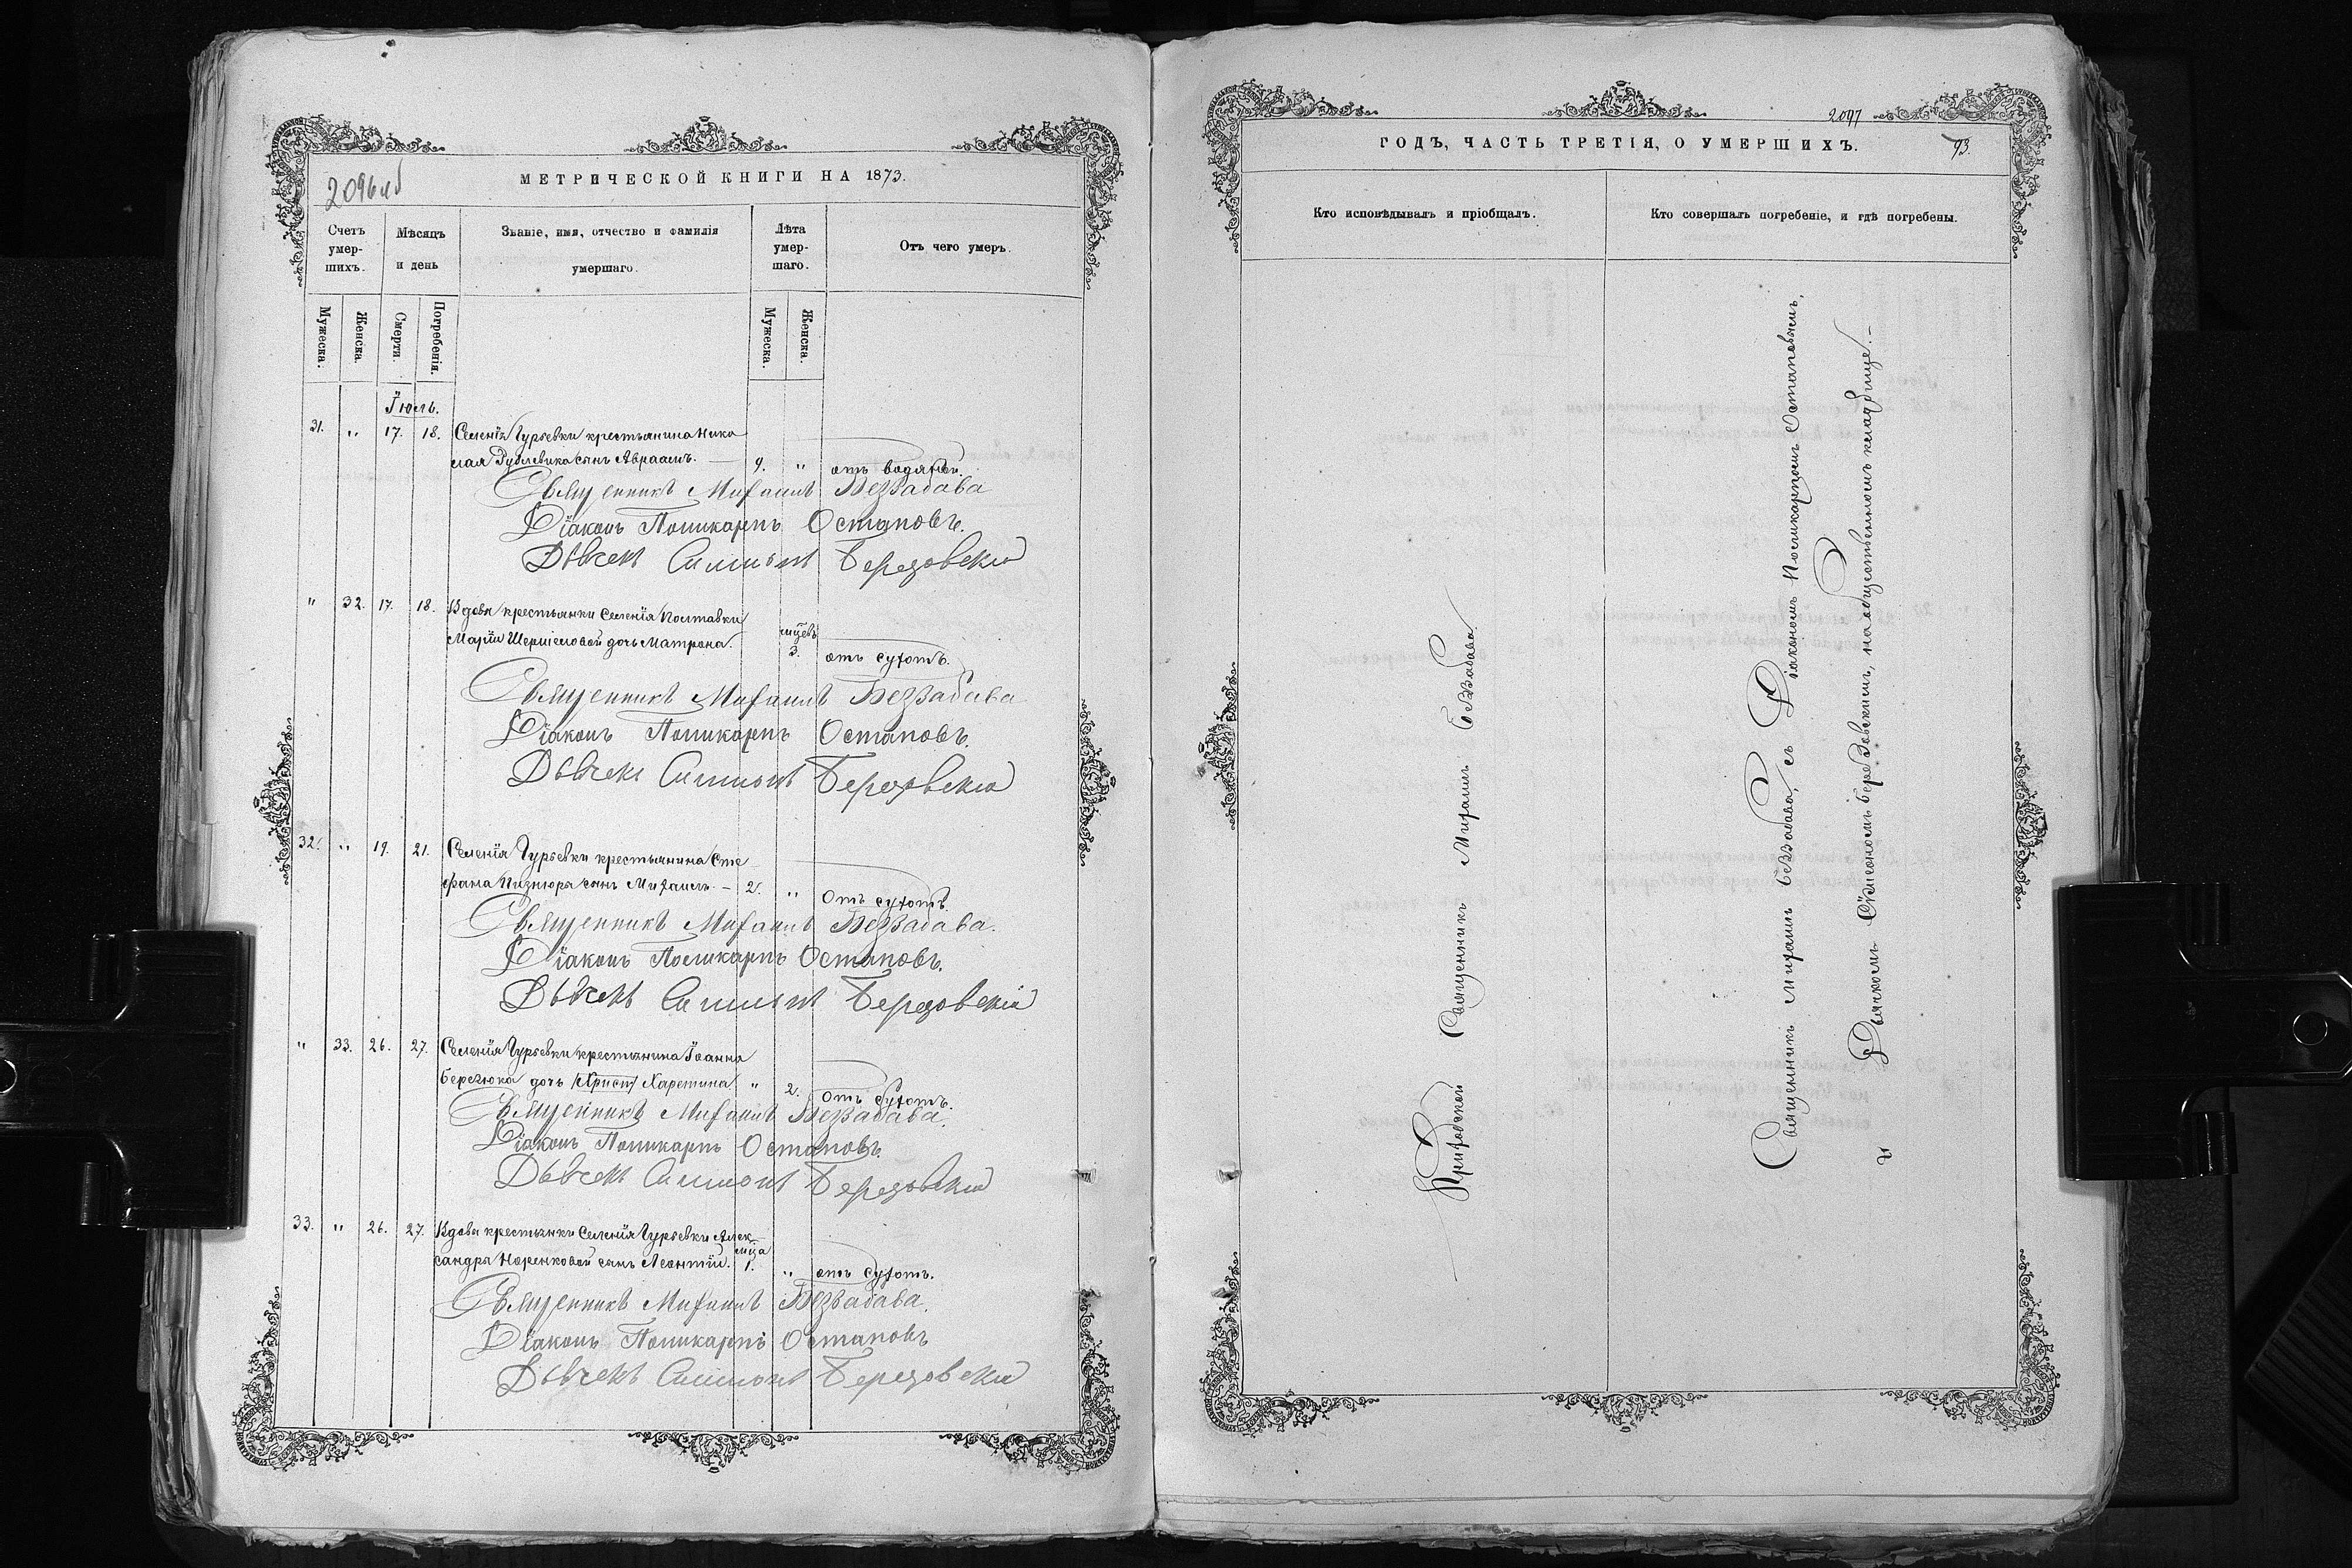 2096об
МЕТРИЧЕСКОЙ КНИГИ НА 1873.
Счетъ умер-шихъ.
Мѣсяцъ и день
Званіе, имя, отчество и фамилія умершаго.
Лѣта умер-шаго.
Отъ чего умеръ.
Мужеска.
Женска.
Смерти.
Погребенія.
Мужеска.
Женска.
Іюль.
31. " 17. 18. Селенія Гурьевки крестьянина Нико
лая сынъ Авраамъ. — 9. " отъ водяной.
Священникъ Михаилъ Беззабава
Діаконъ Поликарпъ Остаповъ.
Дьячекъ Симеонъ Березовскій
" 32. 17. 18. Вдовы крестьянки Селенія Полтавки
Маріи дочь Матрона. мцевъ 3. отъ сухотъ.
Священникъ Михаилъ Беззабава
Діаконъ Поликарпъ Остаповъ.
Дьячекъ Симеонъ Березовскій
32. " 19. 21. Селенія Гурьевки крестьянина Сте
фана сынъ Михаилъ. — 2. " Отъ сухотъ.
Священникъ Михаилъ Беззабава.
Діаконъ Поликарпъ Остаповъ.
Дьячекъ Симеонъ Березовскій
" 33. 26. 27. Селенія Гурьевки крестьянина Іоанна
дочь Харетина " 2. Отъ Сухотъ.
Священникъ Михаилъ Беззабава.
Діаконъ Поликарпъ Остаповъ.
Дьячекъ Симеонъ Березовскій
33. " 26. 27. Вдовы крестьянки Селенія Гурьевки Алек-
сандры Норенковой сынъ Леонтій. мца 1. " отъ Сухотъ.
Священникъ Михаилъ Беззабава.
Діаконъ Поликарпъ Остаповъ
Дьячекъ Симеонъ Березовскій
2097
ГОДЪ, ЧАСТЬ ТРЕТІЯ, О УМЕРШИХЪ.
93.
Кто исповѣдывалъ и пріобщалъ.
Кто совершалъ погребеніе, и гдѣ погребены.
Приходской Священникъ Михаилъ Беззабава.
Священникъ Михаилъ Беззабава, съ Діакономъ Поликарпомъ Остаповымъ,
и Дьячкомъ Сѵмеономъ Березовскимъ, на общественномъ кладбище.—